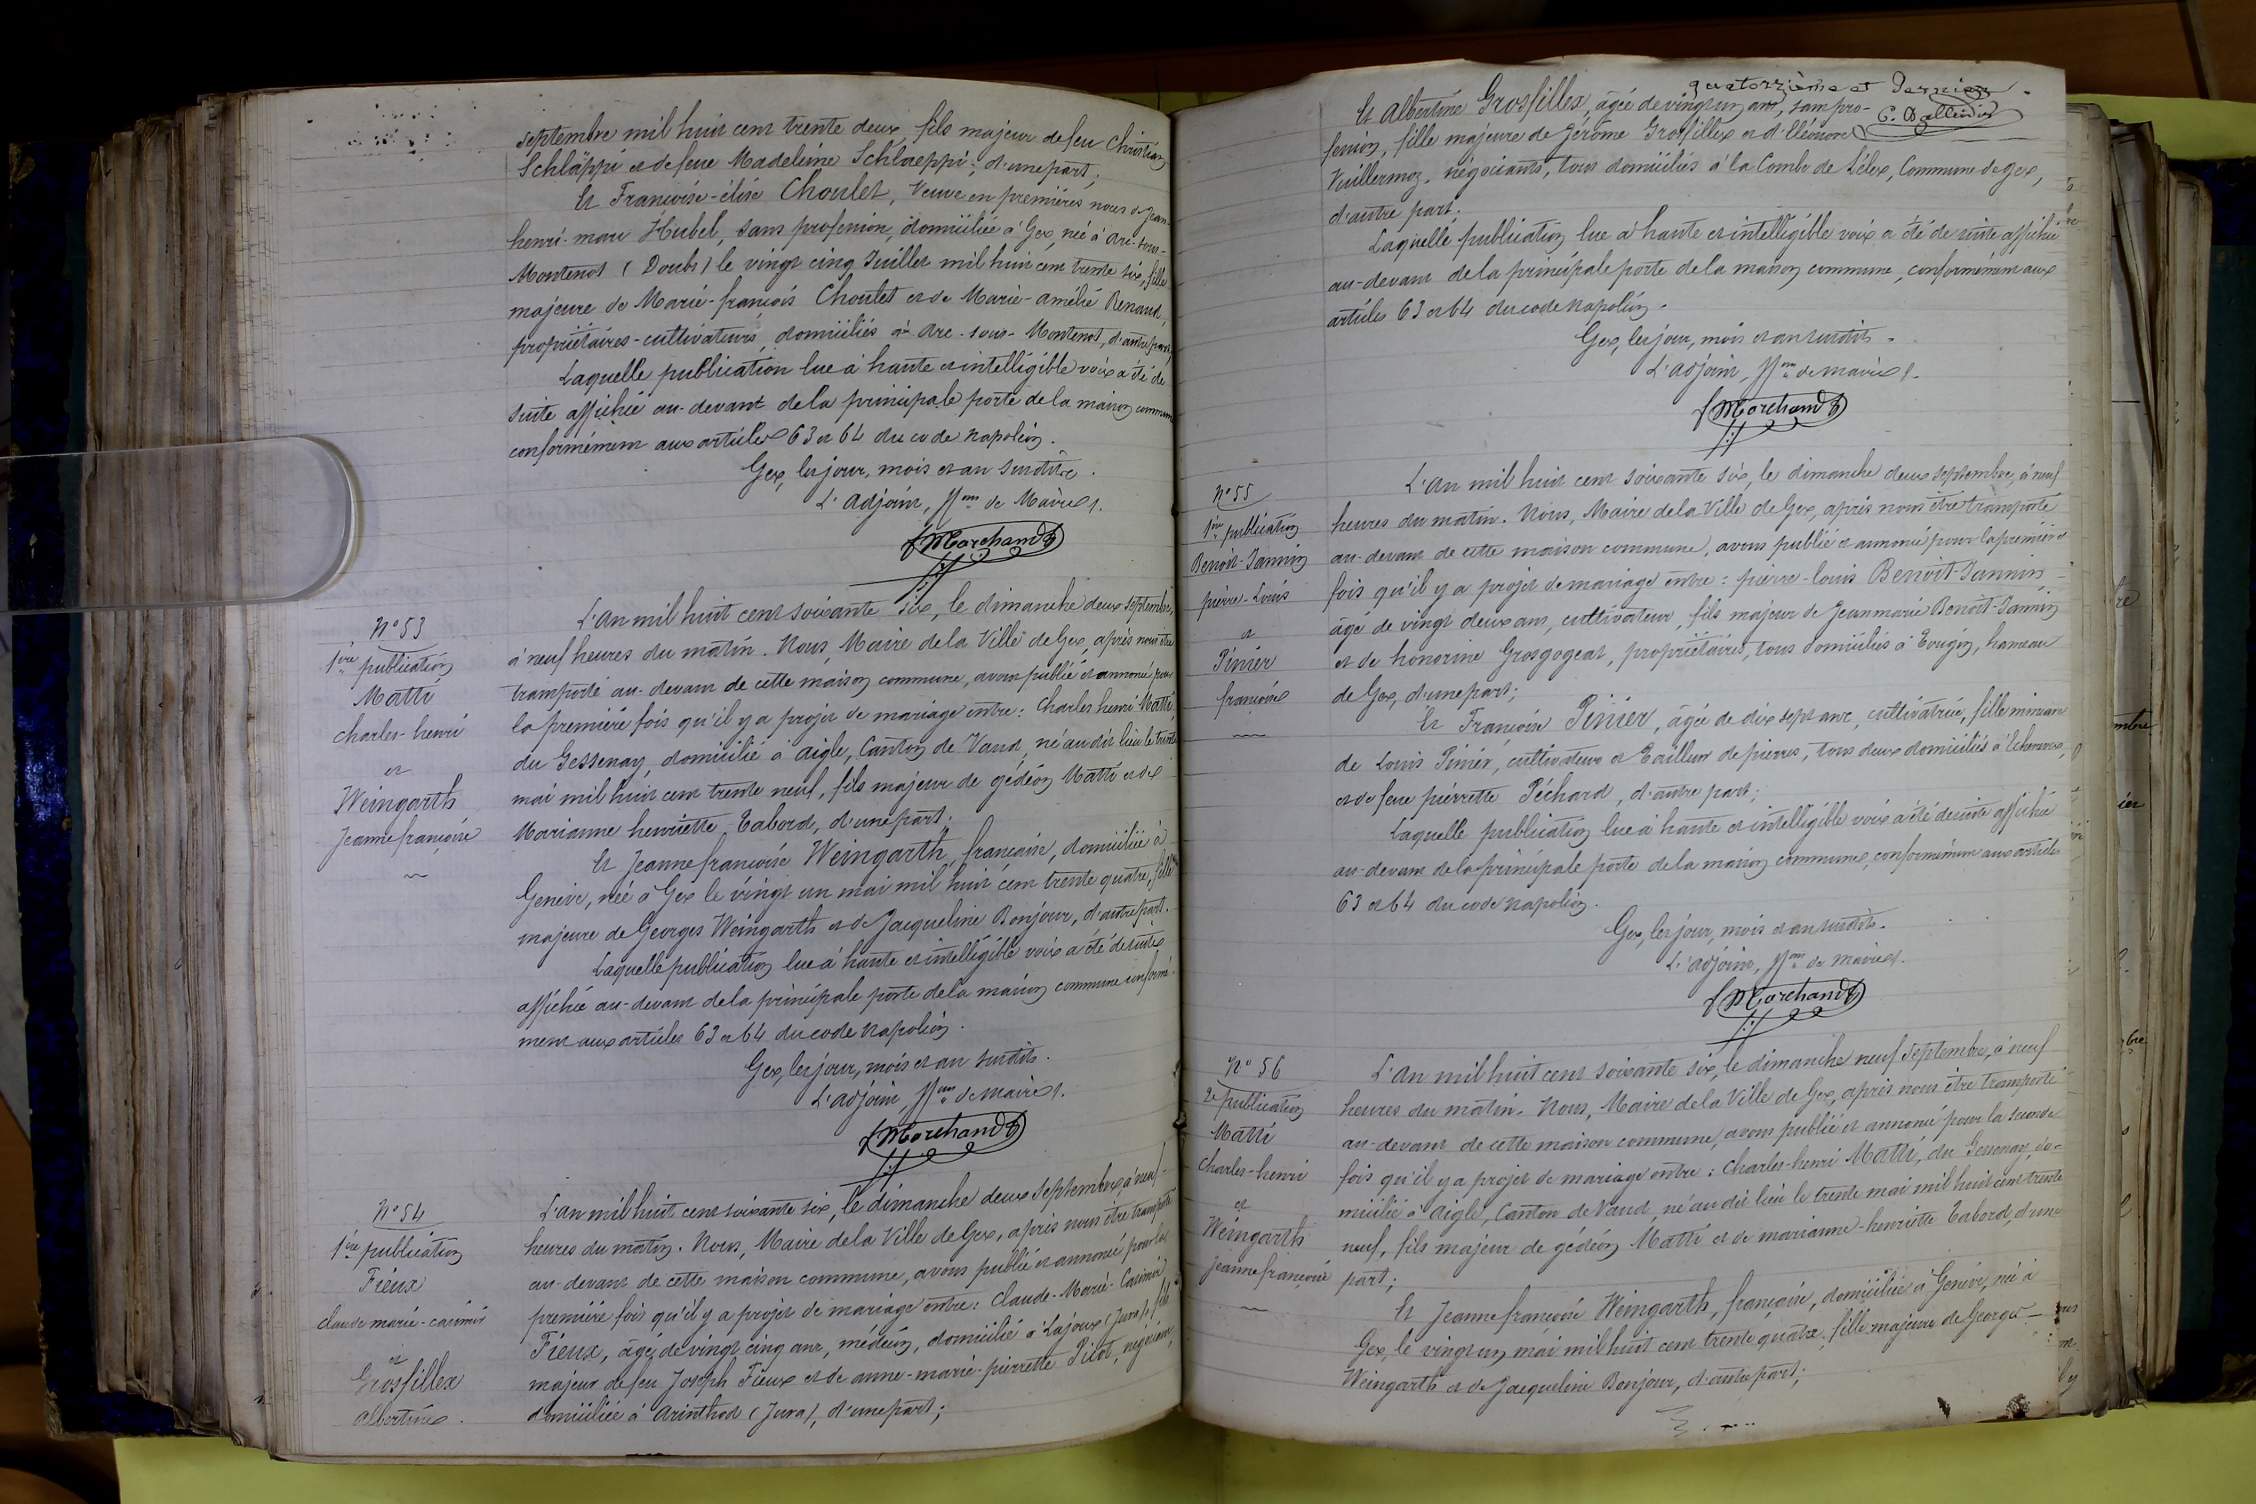 septembre mil huit cent trente deux, fils majeur de feu Christian
Schläppi et de feue Madeleine Schlaeppi; d'une part;
Et Françoise-élise Choulet, Veuve en premières noces de Jean-
henri-marc Hubel, sans profession, domiciliée à Gex, née à Arc-sous-
Montenot (Doubs) le vingt cinq Juillet mil huit cent trente six, fille
majeure de Marie-françois Choulet et de Marie-amélie Renaud,
propriétaires-cultivateurs, domiciliés à Arc-sous-Montenot, d'autre part;
Laquelle publication lue à haute et intelligible voix a été de
suite affichée au-devant de la principale porte de la maison commune
conformément aux articles 63 et 64 du code Napoléon.
Gex, les jour, mois et an susdits.
L'adjoint, ff.ons de Maire,
Marchand
N° 53
1ère publication
Matti
charles-henri
et
Weingarth
Jeanne françoise
L'an mil huit cent soixante six, le dimanche deux septembre,
à neuf heures du matin. Nous, Maire de la Ville de Gex, après nous être
transporté au-devant de cette maison commune, avons publié et annoncé pour
la première fois qu'il y a projet de mariage entre: Charles henri Matti,
du Gessenay, domicilié à Aigle, Canton de Vaud, né au dit lieu le trente
mai mil huit cent trente neuf, fils majeur de gédéon Matti et de
Marianne henriette Tabord, d'une part;
Et Jeanne françoise Weingarth, française, domiciliée à
Genève, née à Gex le vingt un mai mil huit cent trente quatre, fille
majeure de Georges Weingarth et de Jacqueline Bonjour, d'autre part.
Laquelle publication lue à haute et intelligible voix a été de suite
affichée au-devant de la principale porte de la maison commune conformé-
ment aux articles 63 et 64 du code Napoléon.
Gex, les jour, mois et an susdits.
L'adjoint, ff.ons de maire,
Marchand
N° 54
1ère publication
Fieux
claude marie-casimir
et
Grosfillex
albertine.
L'an mil huit cent soixante six, le dimanche deux Septembre, à neuf
heures du matin. Nous, Maire de la Ville de Gex, après nous être transporté
au-devant de cette maison commune, avons publié et annoncé pour la
première fois qu'il y a projet de mariage entre: Claude-Marie-Casimir
Fieux, âgé de vingt cinq ans, médecin, domicilié à Lajoux (Jura), fils
majeur de feu Joseph Fieux et de anne-marie-pierrette Pilot, négociante,
domiciliée à Arinthod (Jura), d'une part;
quatorzième et Dernier.
Et Albertine Grosfillex, âgée de vingt un ans, sans pro-
fession, fille majeure de Jérôme Grosfillex et d'Eléonore
Vuillermoz, négociants, tous domiciliés à la Combe de Lélex, Commune de gex,
d'autre part;
Laquelle publication lue à haute et intelligible voix a été de suite affichée
au-devant de la principale porte de la maison commune, conformément aux
articles 63 et 64 du code Napoléon.
Gex, les jour, mois et an susdits.
L'adjoint, ff.ons de maire,
Marchand
N° 55
1ère publication
Benoit-Jannin
pierre-Louis
et
Pinier
françoise
L'an mil huit cent soixante six, le dimanche deux septembre, à neuf
heures du matin. Nous, Maire de la Ville de Gex, après nous être transporté
au-devant de cette maison commune, avons publié et annoncé pour la première
fois qu'il y a projet de mariage entre: pierre-louis Benoit-Jannin,
âgé de vingt deux ans, cultivateur, fils majeur de Jean marie Benoit-Jannin
et de honorine Grosgogeat, propriétaires, tous domiciliés à Tougin, hameau
de Gex, d'une part;
Et Françoise Pinier, âgée de dix sept ans, cultivatrice, fille mineure
de Louis Pinier, cultivateur et Tailleur de pierres, tous deux domiciliés à Echenevex,
et de feue pierrette Péchard, d'autre part;
Laquelle publication lue à haute et intelligible voix a été de suite affichée
au-devant de la principale porte de la maison commune, conformément aux articles
63 et 64 du code Napoléon.
Gex, les jour, mois et an susdits.
L'adjoint, ff.ons de maire,
Marchand
N° 56
2e publication
Matti
charles-henri
et
Weingarth
jeanne françoise
L'an mil huit cent soixante six, le dimanche neuf Septembre, à neuf
heures du matin. Nous, Maire de la Ville de Gex, après nous être transporté
au-devant de cette maison commune, avons publié et annoncé pour la seconde
fois qu'il y a projet de mariage entre: charles-henri Matti, du Gessenay, do-
micilié à Aigle, Canton de Vaud, né au dit lieu le trente mai mil huit cent trente
neuf, fils majeur de gédéon Matti et de marianne-henriette Tabord, d'une
part;
Et Jeanne françoise Weingarth, française, domiciliée à Genève, née à
Gex, le vingt un mai mil huit cent trente quatre, fille majeure de Georges
Weingarth et de Jacqueline Bonjour, d'autre part;